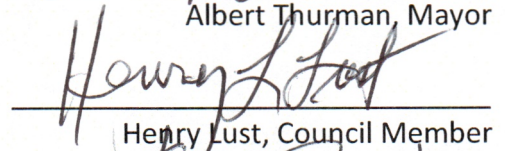 Albert Thurman, Mayor
Henry L Lust
Henry Lust, Council Member